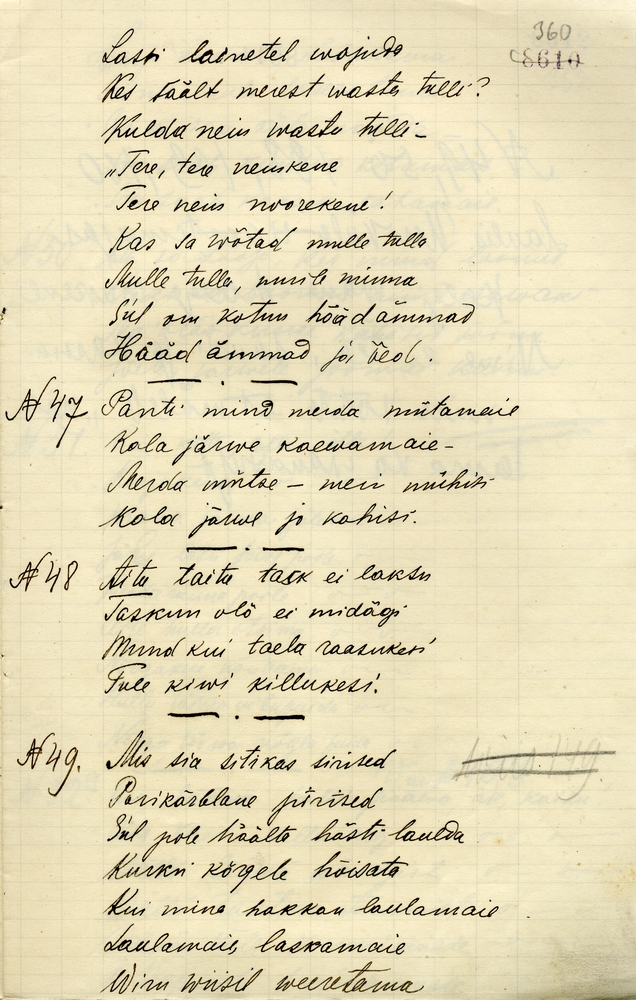 360
8610
Lassi lainetel wajuda
Kes säält merest wasta tulli?
Kulda neiu wastu tulli –
„Tere, tere neiukene
Tere neiu noorekene!
Kas sa wõtad mulle tulla
Mulle tulla, muile minna
Siil om kotun hääd ämmad
Hääd ämmad ja õed.
N 47 Panti mind merda mõtamaie
Kola järwe kaewamaie –
Merda mõtse – meri mühisi
Kola järwe jo kohisi.
N 48 Aitu taitu task ei laksu
Taskun olõ ei midägi
Muud kui taela raasukesi
Tule kiwi killukesi.
N 49. Mis sia sitikas sirised
Porikärblane pirised
Siil pole häälta hästi laulda
Kurku kõrgele hõisata
Kui mina hakkan laulamaie
Laulamaie laskamaie
Wiru wiisil weeretama